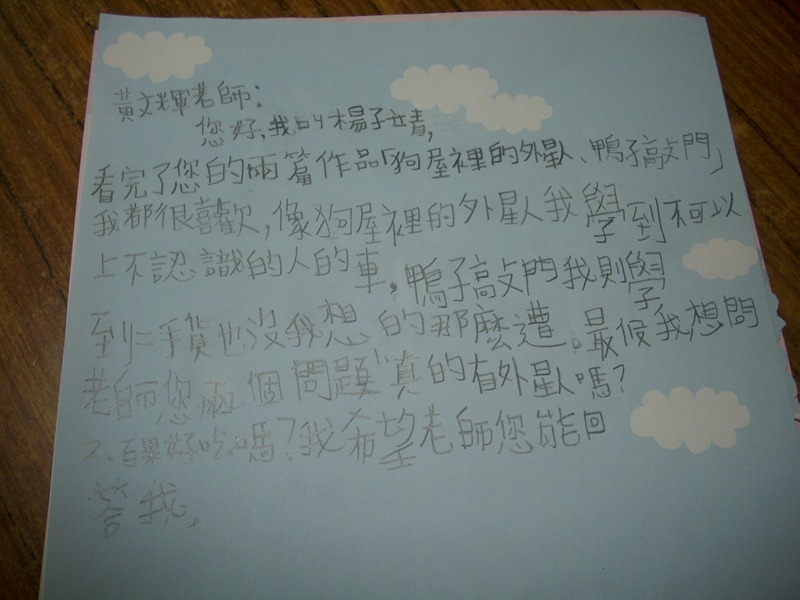 黃文輝老師：
您好，我叫楊子青，
看完了您的兩篇作品「狗屋裡的外星人、鴨子敲門」
我都很喜歡，像狗屋裡的外星人我學到不可以
上不認識的人的車。鴨子敲門我則學
到二手貨也沒我想的那麼遭。最後我想問
老師您兩個問題1.真的有外星人嗎？
2、百果好吃嗎？我希望老師您能回
答我，